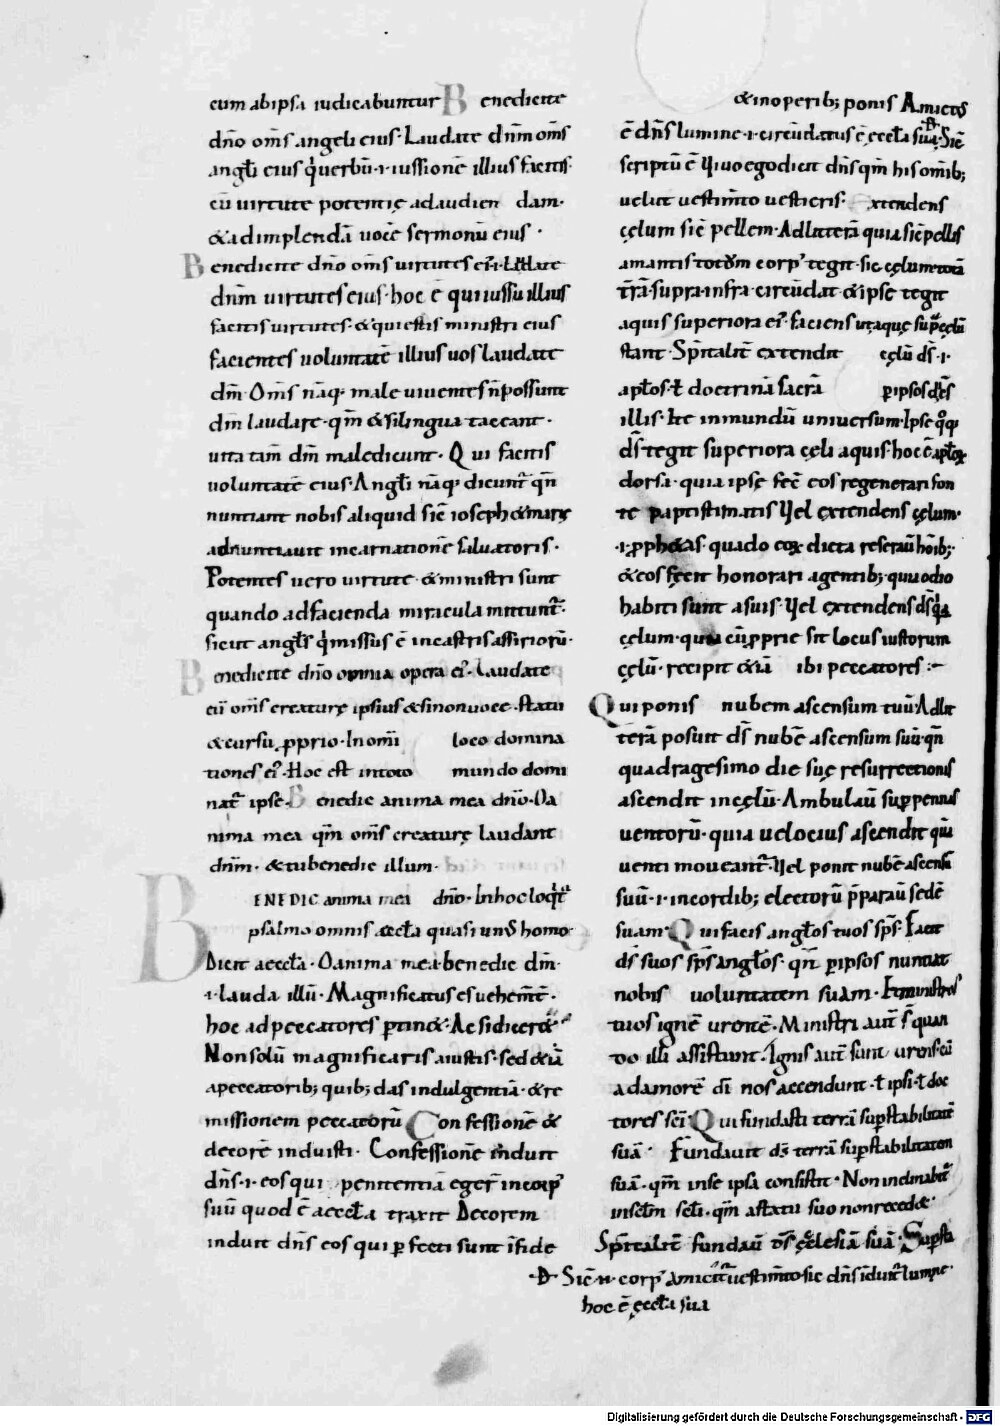 cum ab ipsa iudicabuntur Benedicite
dño om̅s angeli eius · Laudate dn̅m om̅s
angl̅i eius q̇ uerbū ·i· iussionē illius facitis·
cū uirtute potentię ad audien dam·
& ad implendā vocē sermonū eius ·
Benedicite dn̅o om̅s uirtutes ei᾽ ·i· Laudate
dn̅m uirtutes eius · hoc ē qui iussu illius
facitis uirtutes · & qui estis ministri eius
facientes uoluntatē illius uos laudate
dm̅ Om̅s nāq· male uiuentes n̅ possunt
dm̅ laudare · qm̅ & si lingua taceant ·
uita tam̅ dm̅ maledicunt · Qui facitis
uoluntatē eius · Angl̅i nāq· dicunt᾽ qn̅
nuntiant nobis aliquid sic̅ ioseph & marię
adnuntiauit incarnationē saluatoris ·
Potentes uero uirtute · & ministri sunt
quando ad facienda miracula mittunt᾽·
sicut angl̅s q̇ missus ē in castris assirioru̅·
Benedicite dn̅o omnia opera ei᾽· Laudate
eū om̅s creaturę ipsius & si non uoce · statu
& cursu ꝓprio · In om̅i loco domina
tiones ei᾽· Hoc est in toto mundo domi
nat᾽ ipse · Benedic anima mea dn̅o · O a
nima mea qm̅ om̅s creaturę laudant
dn̅m · & tu benedic illum ·
BENEDIC anima mea dn̅o · In hoc loq̇t᾽
psalmo omnis ęccl̅a quasi un᾽ homo·
Dicit aeccl̅a · O anima mea · benedic dm̅·
·i· lauda illū · Magnificatus es uehem̅t̅·
hoc ad peccatores ꝑtin& · Ac si dicer&·
Non solū magnificaris a iustis · sed & iā
a peccatorib; quib; das indulgentiā · & re
missionem peccatorū Confessionē &
decorē induisti · Confessionē induit
dn̅s ·i· eos qui penitentiā eger̅ in corp᾽
suū quod ē aeccl̅a traxit Decorem
induit dn̅s eos qui ꝑfecti sunt in fide
& in operib; ponis Amictus
ē dn̅s lumine ·i· circūdatus ē ęccl̅a sua · Sic̅
scriptū ē Viuo ego dicit dn̅s qm̅ his om̅ib;
uelut uestim̅to uestieris · Extendens
cęlum sic̅ pellem · Ad litterā quia sic̅ pellis
amantis totum corp᾽ tegit · sic cęlum totā
t̅rā · supra · infra · circūdat & ipse tegit
aquis superiora ei᾽· faciens ut aquę sup̅ cęlū
stant · Sp̅italit̅ extendit cęlū ds̅ ·i·
apl̅os · ł doctrinā sacrā ꝑ ipsos
illis · Ite in mundū uniuersum · Ipse q̊q·
ds̅ tegit superiora cęli aquis · hoc ē
dorsa · quia ipse fec̅ eos regenerari fon
te paptistimatis Vel extendens cęlum·
·i· ꝓph&as · quādo eoꝝ dicta reserau̅ hōib;
& eos fecit honorari a gentib; qui odio
habiti sunt a suis · Vel extendens ds̅
cęlum · qui cū ꝓprie sit locus iustorum
cęlū · recipit & iā ibi peccatores :~
Qui ponis nubem ascensum tuū · Ad lit
terā posuit ds̅ nubē ascensum suū · qn̅
quadragesimo die suę resurrectionis
ascendit in cęlū · Ambulau̅ sup̅ pennas
uentorū · quia uelocius ascendit quā
uenti moueant᾽· Vel ponit nubē ascensū
suū ·i· in cordib; electorū p̅parau̅ sedē
suam · Qui facis angl̅os tuos sp̅s · Facit
ds̅ suos sp̅s angl̅os · qn̅ ꝑ ipsos nuntiat
nobis uoluntatem suam · Et ministros
tuos ignē urentē · Ministri aut̅ st̅ quan
do illi assistunt · Ignis aut̅ sunt urens cū
ad amorē di̅ nos accendunt · ł ipsi · ł doc
tores sc̅i · Qui fundasti terrā sup̅ stabilitatē
suā · Fundauit ds̅ terrā sup̅ stabilitatem
suā · qm̅ in se ipsa consistit · Non inclinabit᾽
in sc̅lm̅ sc̅li · qm̅ a statu suo non reced&·
Sp̅italit̅ fundau̅ ds̅ ęcclesiā suā · Sup̅ sta
·D· Sic̅ ·n· corp᾽ amicit᾽ uestim̅to sic dn̅s induit᾽ lumine·
hoc ē ęccl̅a sua
Digitalisierung gefördert durch die Deutsche Forschungsgemeinschaft - DFG